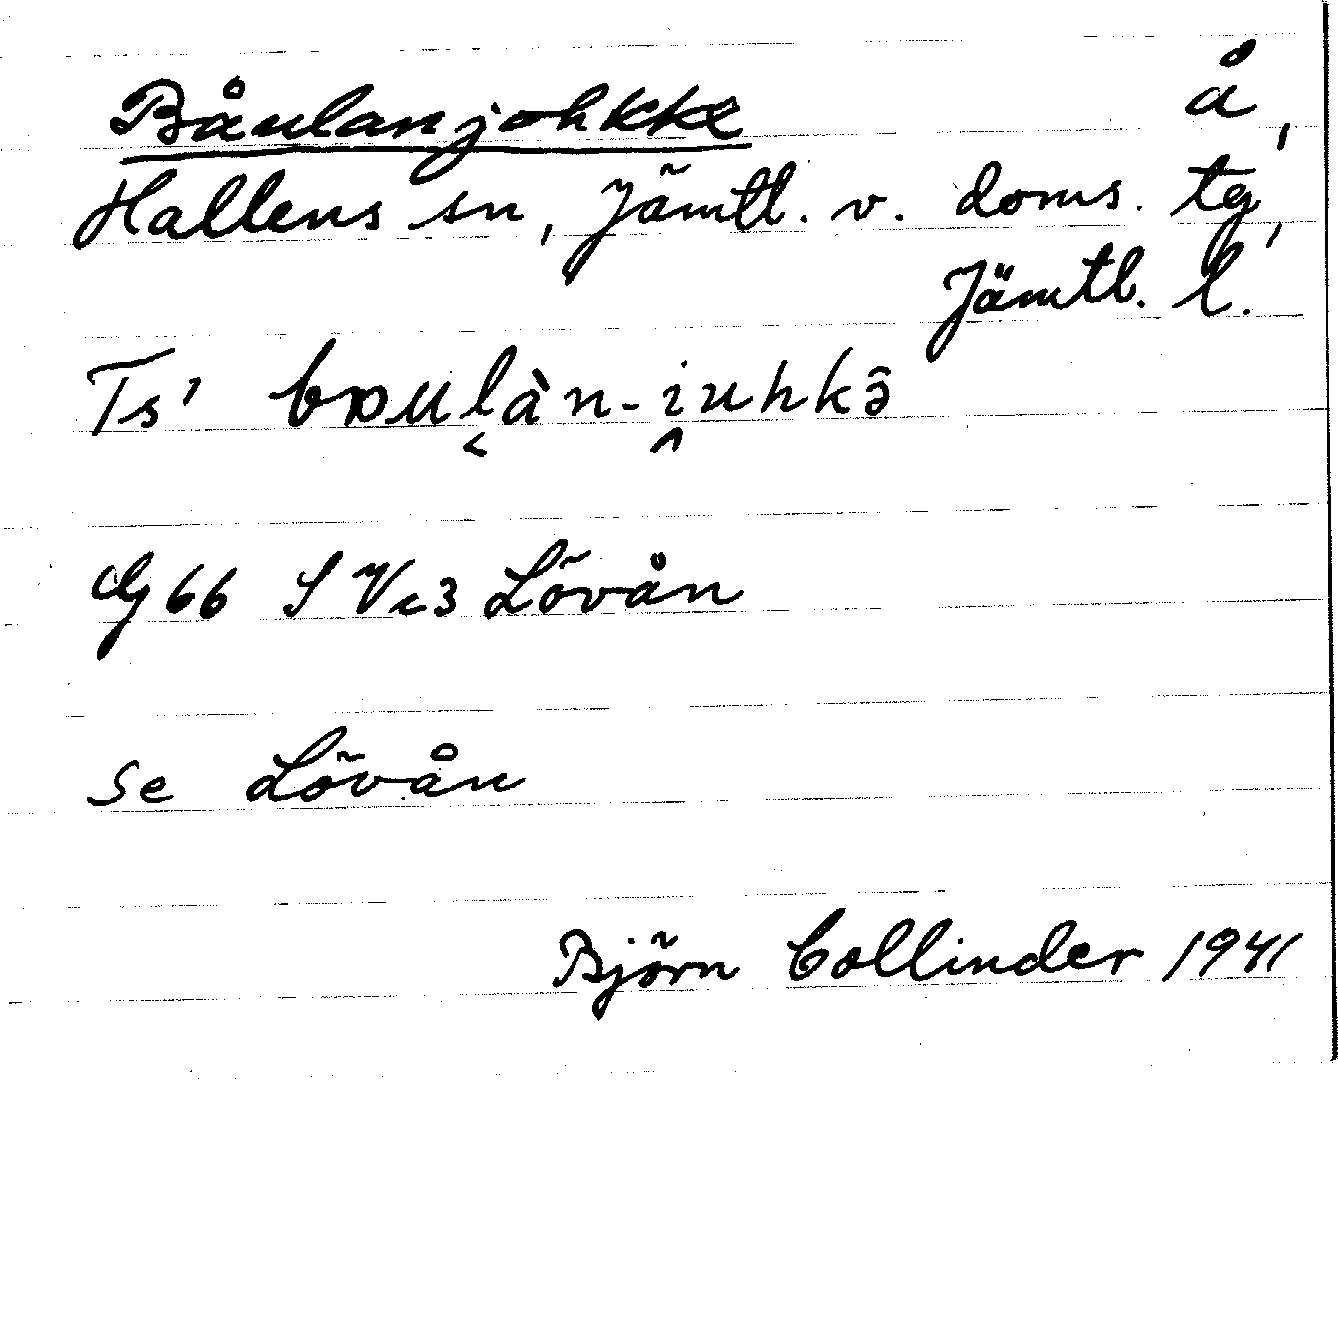 Båulanjohkke å,
Hallens sn, Jämtl. v. doms. tg,
Jämtl. l.
Ts'
G 66 S Vc3 Lövån
se Lövån
Björn Collinder 1941